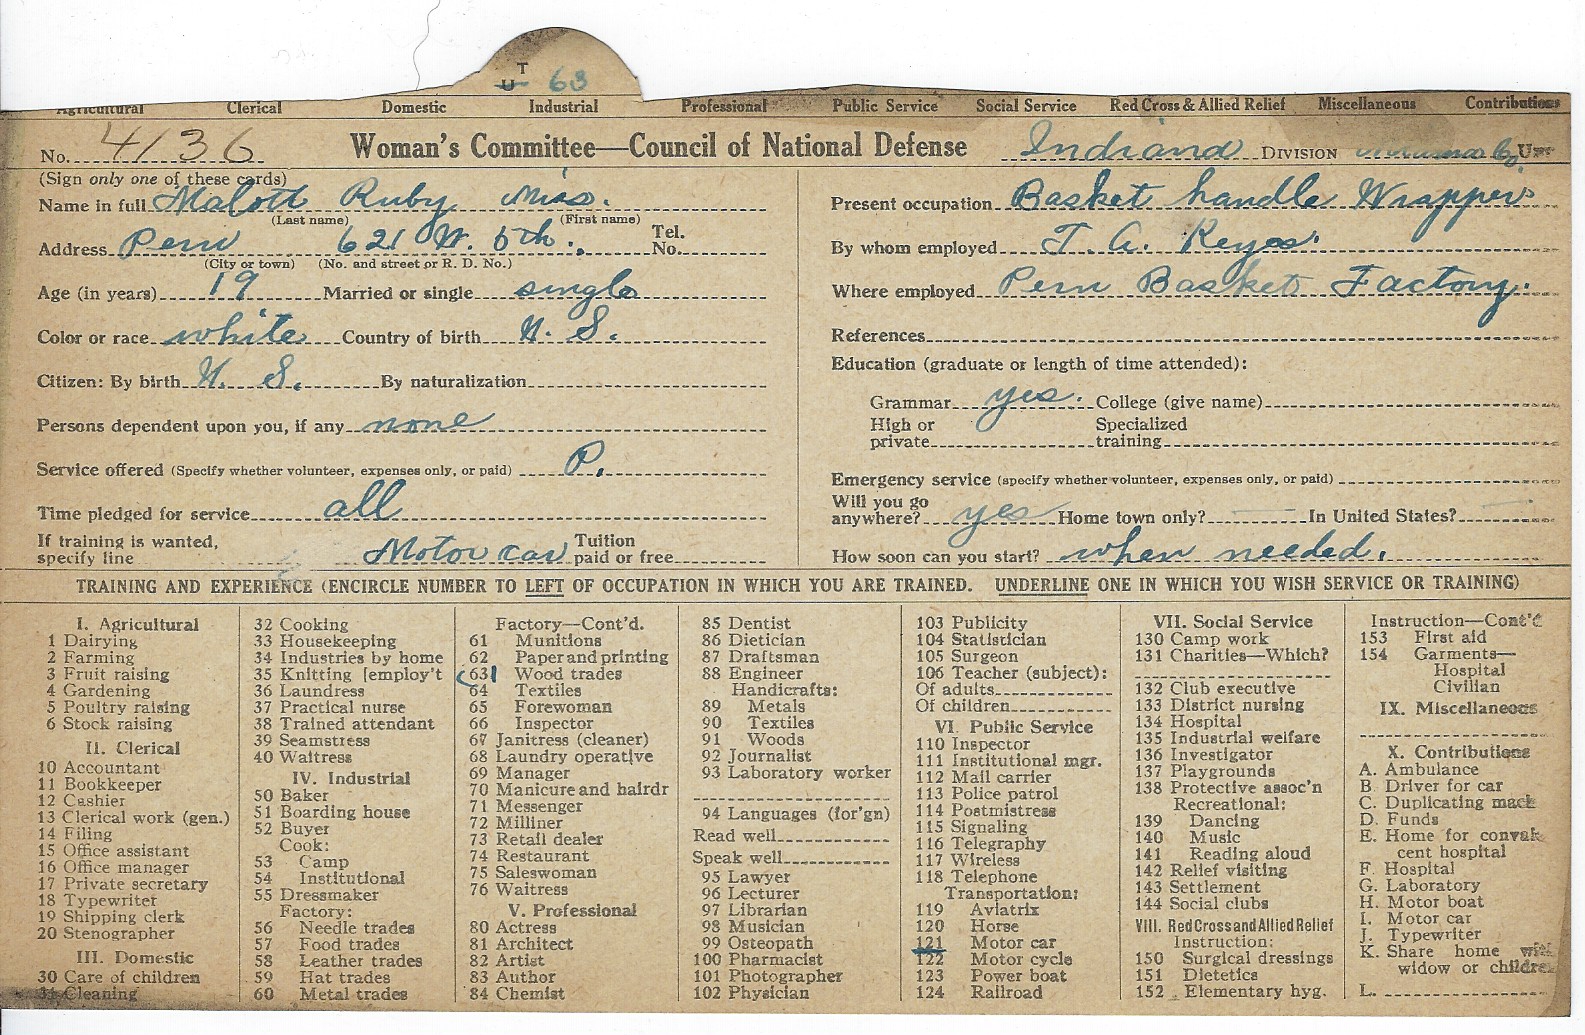 T
U 63
Agricultural Clerical Domestic Industrial Professional Public Service Social Service Red Cross & Allied Relief Miscellaneous Contributions
No. 4136 Woman's Committee—Council of National Defense Indiana DIVISION
(Sign only one of these cards)
Name in full Malott Ruby Miss.
(Last name) (First name)
Address Peru 621 W. 5th. Tel. No.
(City or town) (No. and street or R. D. No.)
Age (in years) 19 Married or single single
Color or race white Country of birth U. S.
Citizen: By birth U. S. By naturalization
Persons dependent upon you, if any none
Service offered (Specify whether volunteer, expenses only, or paid) P.
Time pledged for service all
If training is wanted, specify line Motor car Tuition paid or free
Present occupation Basket handle Wrapper
By whom employed
Where employed Peru Basket Factory.
References
Education (graduate or length of time attended):
Grammar yes. College (give name)
High or private Specialized training
Emergency service (specify whether volunteer, expenses only, or paid)
Will you go anywhere? yes Home town only? In United States?
How soon can you start? when needed.
TRAINING AND EXPERIENCE (ENCIRCLE NUMBER TO LEFT OF OCCUPATION IN WHICH YOU ARE TRAINED. UNDERLINE ONE IN WHICH YOU WISH SERVICE OR TRAINING)
I. Agricultural
1 Dairying
2 Farming
3 Fruit raising
4 Gardening
5 Poultry raising
6 Stock raising
II. Clerical
10 Accountant
11 Bookkeeper
12 Cashier
13 Clerical work (gen.)
14 Filing
15 Office assistant
16 Office manager
17 Private secretary
18 Typewriter
19 Shipping clerk
20 Stenographer
III. Domestic
30 Care of children
31 Cleaning
32 Cooking
33 Housekeeping
34 Industries by home
35 Knitting [employ't
36 Laundress
37 Practical nurse
38 Trained attendant
39 Seamstress
40 Waitress
IV. Industrial
50 Baker
51 Boarding house
52 Buyer
Cook:
53 Camp
54 Institutional
55 Dressmaker
Factory:
56 Needle trades
57 Food trades
58 Leather trades
59 Hat trades
60 Metal trades
Factory—Cont'd.
61 Munitions
62 Paper and printing
63 Wood trades
64 Textiles
65 Forewoman
66 Inspector
67 Janitress (cleaner)
68 Laundry operative
69 Manager
70 Manicure and hairdr
71 Messenger
72 Milliner
73 Retail dealer
74 Restaurant
75 Saleswoman
76 Waitress
V. Professional
80 Actress
81 Architect
82 Artist
83 Author
84 Chemist
85 Dentist
86 Dietician
87 Draftsman
88 Engineer
Handicrafts:
89 Metals
90 Textiles
91 Woods
92 Journalist
93 Laboratory worker
94 Languages (for'gn)
Read well
Speak well
95 Lawyer
96 Lecturer
97 Librarian
98 Musician
99 Osteopath
100 Pharmacist
101 Photographer
102 Physician
103 Publicity
104 Statistician
105 Surgeon
106 Teacher (subject):
Of adults
Of children
VI. Public Service
110 Inspector
111 Institutional mgr.
112 Mail carrier
113 Police patrol
114 Postmistress
115 Signaling
116 Telegraphy
117 Wireless
118 Telephone
Transportation:
119 Aviatrix
120 Horse
121 Motor car
122 Motor cycle
123 Power boat
124 Railroad
VII. Social Service
130 Camp work
131 Charities—Which?
132 Club executive
133 District nursing
134 Hospital
135 Industrial welfare
136 Investigator
137 Playgrounds
138 Protective assoc'n
Recreational:
139 Dancing
140 Music
141 Reading aloud
142 Relief visiting
143 Settlement
144 Social clubs
VIII. Red Cross and Allied Relief
Instruction:
150 Surgical dressings
151 Dietetics
152 Elementary hyg.
Instruction—Cont'd
153 First aid
154 Garments—
Hospital
Civilian
IX. Miscellaneous
X. Contributions
A. Ambulance
B Driver for car
C. Duplicating mach
D. Funds
E. Home for conval
cent hospital
F. Hospital
G. Laboratory
H. Motor boat
I. Motor car
J. Typewriter
K. Share home with
widow or children
L.